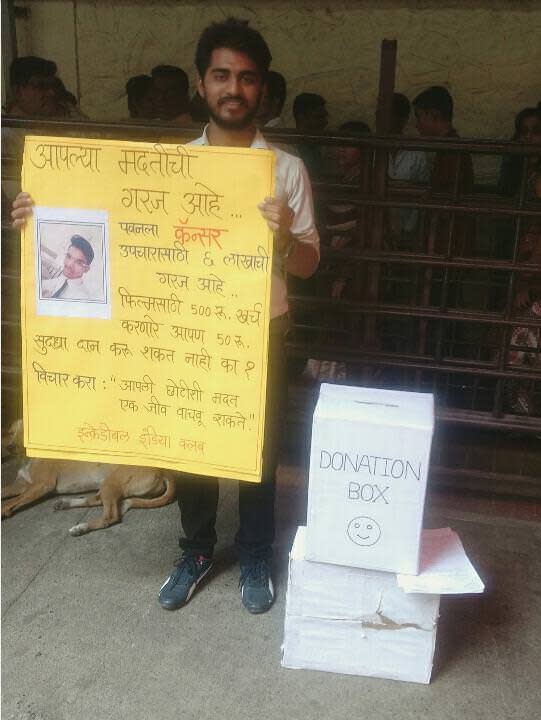 आपल्या मदतीची
गरज आहे...
पवनला कॅन्सर
उपचारासाठी 6 लाखाची
गरज आहे..
फिल्मसाठी 500 रू. खर्च
करणारे आपण 50 रू.
सुद्धा दान करू शकत नाही का?
विचार करा : "आपली छोटीशी मदत
एक जीव वाचवू शकते."
इन्क्रेडीबल इंडिया क्लब
DONATION
BOX